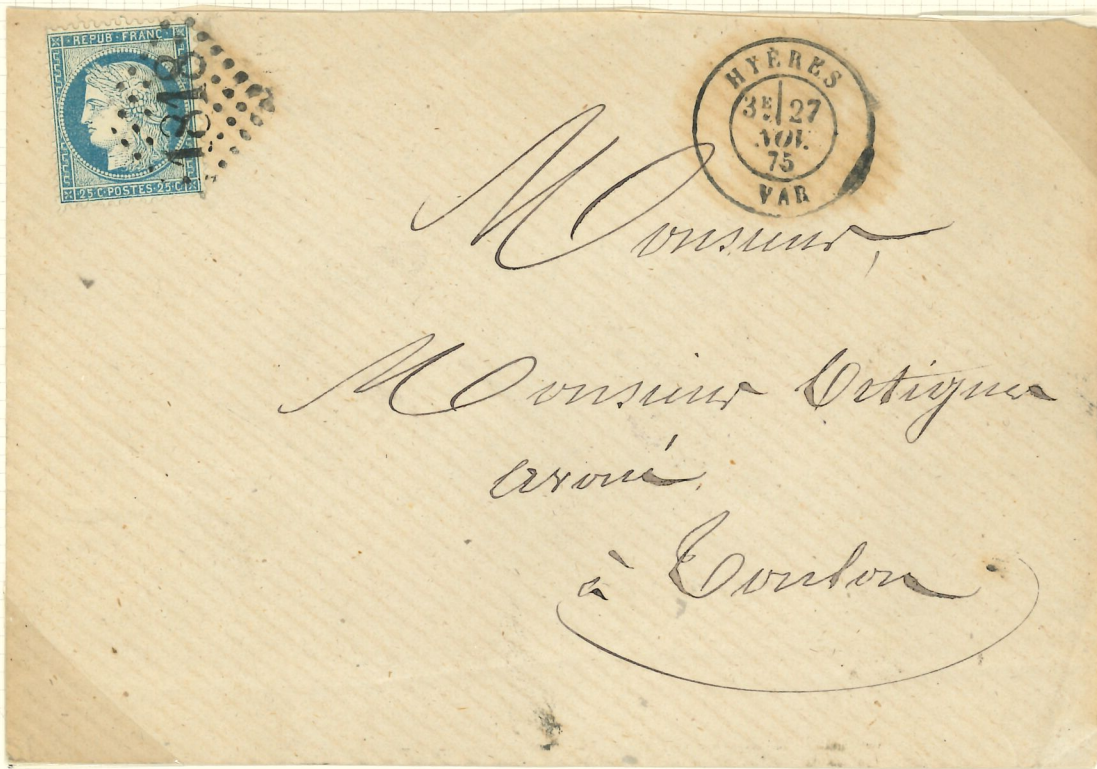 REPUB·FRANC·
25 C·POSTES·25 C
1818
HYÈRES
3E 27
NOV.
75
VAR
Monsieur,
Monsieur
avoué
à Toulon